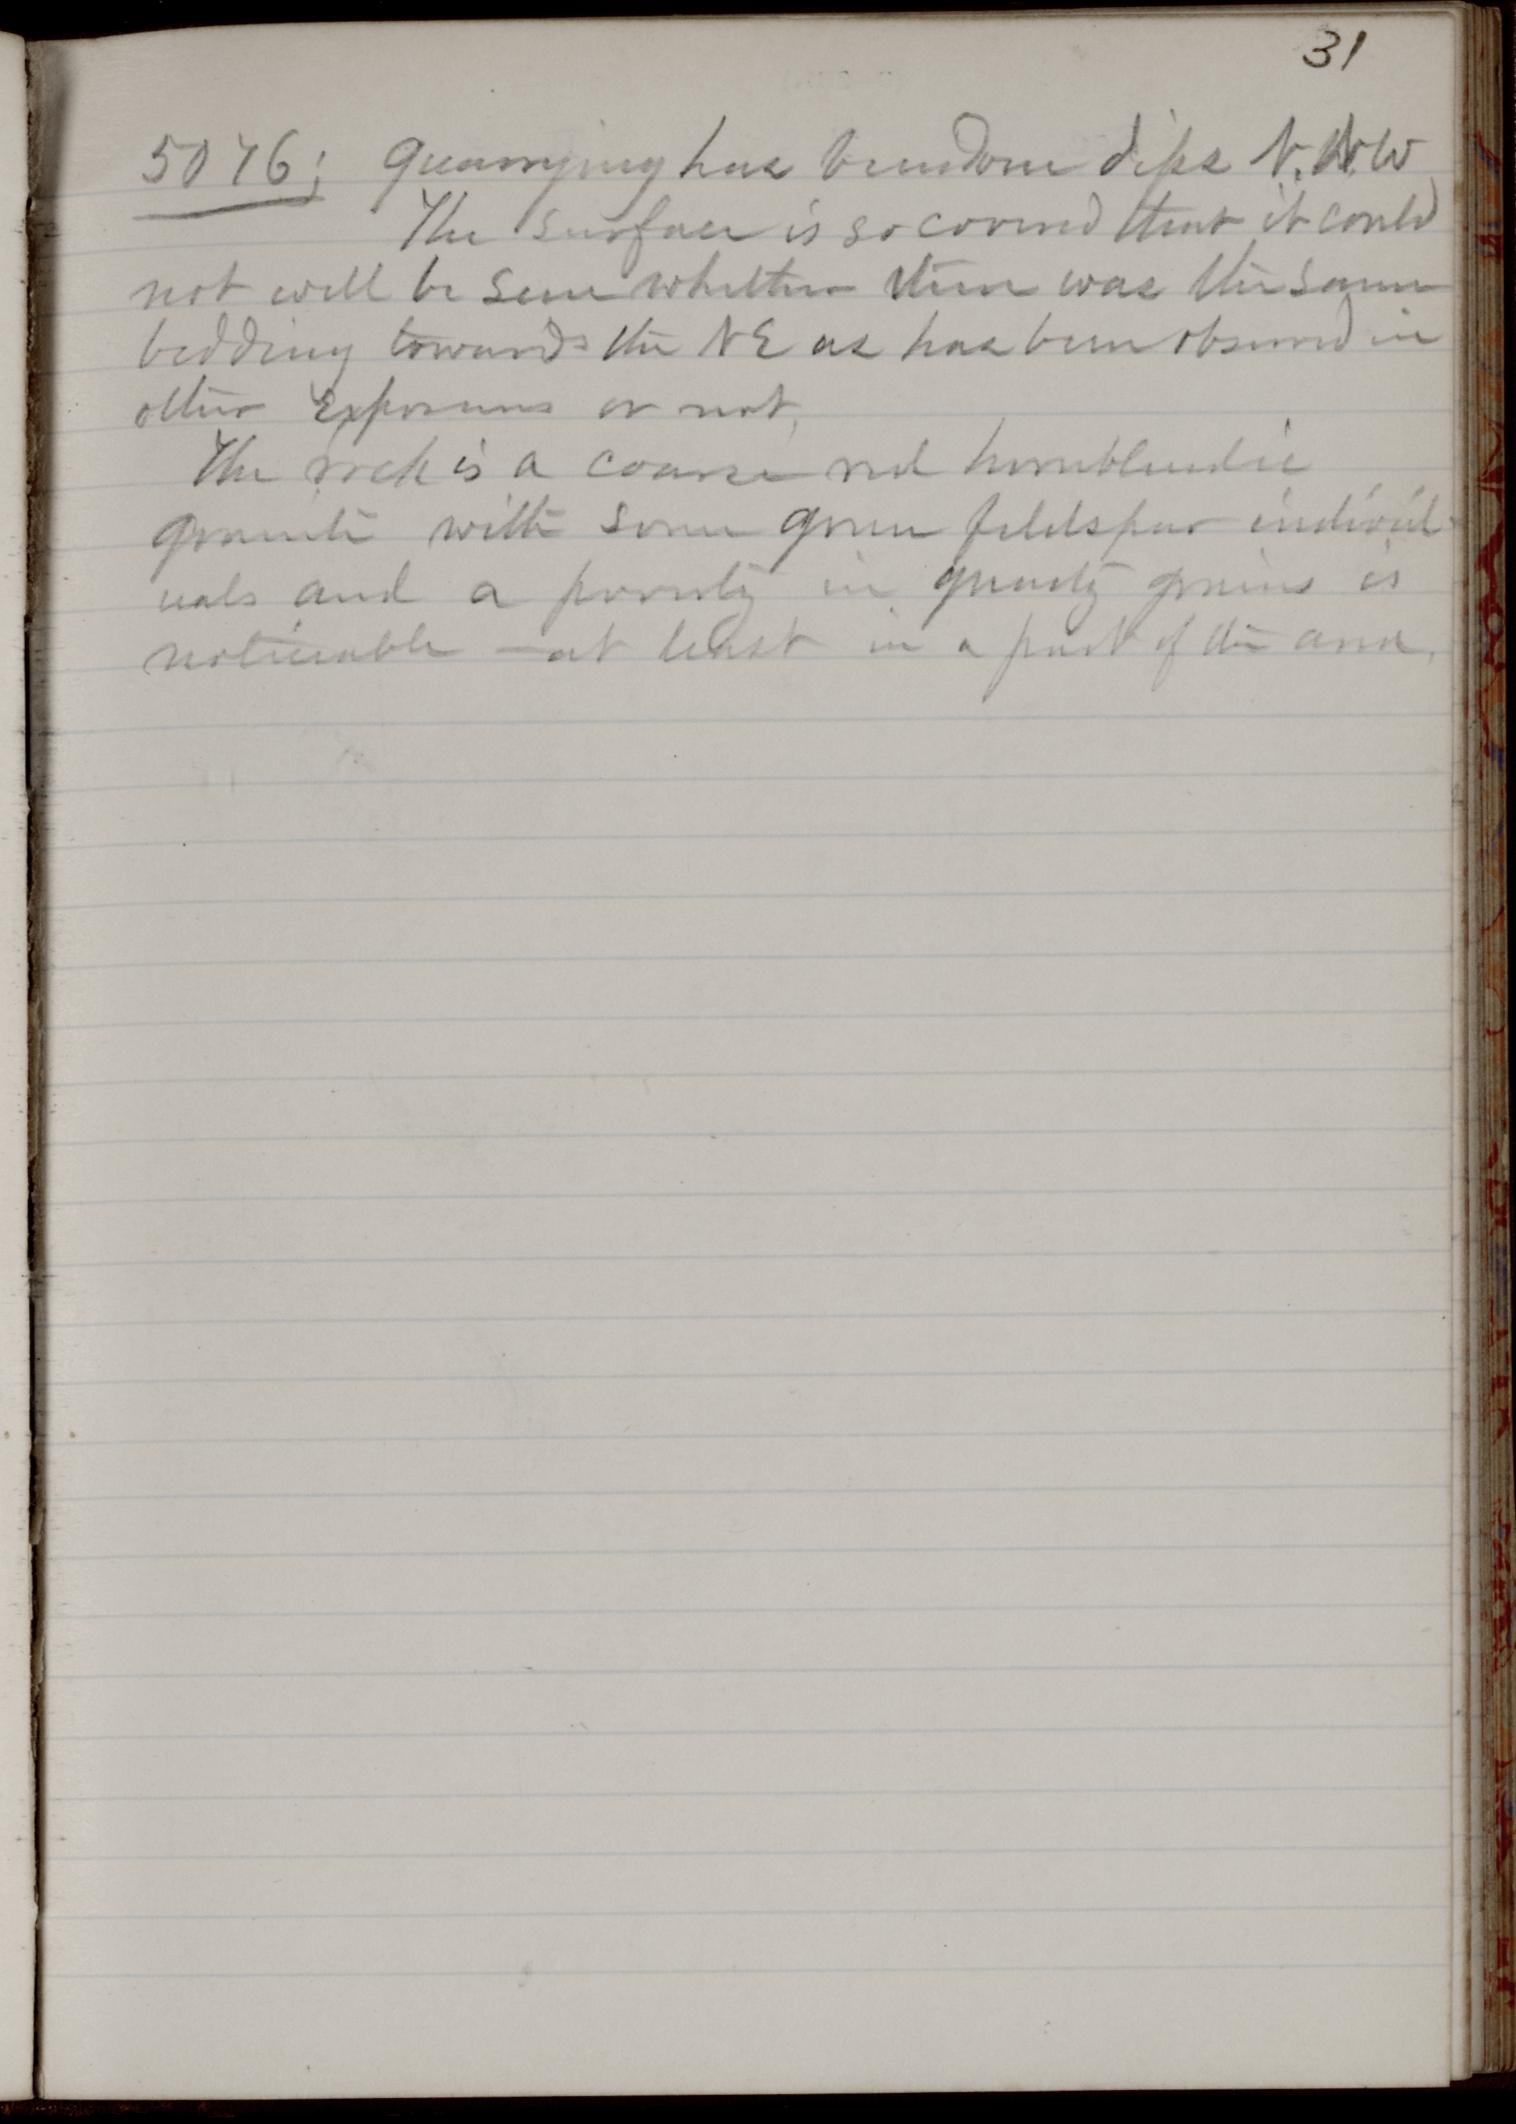 31
5076; quarrying has been done dips N.N.W
The surface is so covered that it could
not well be seen whether there was the same
bedding towards the NE as has been observed in
other Exposures or not.
The rock is a coarse red hornblendic
granite with some green feldspar individ-
uals and a poverty in quartz grains is
noticeable – at least in a part of the area.